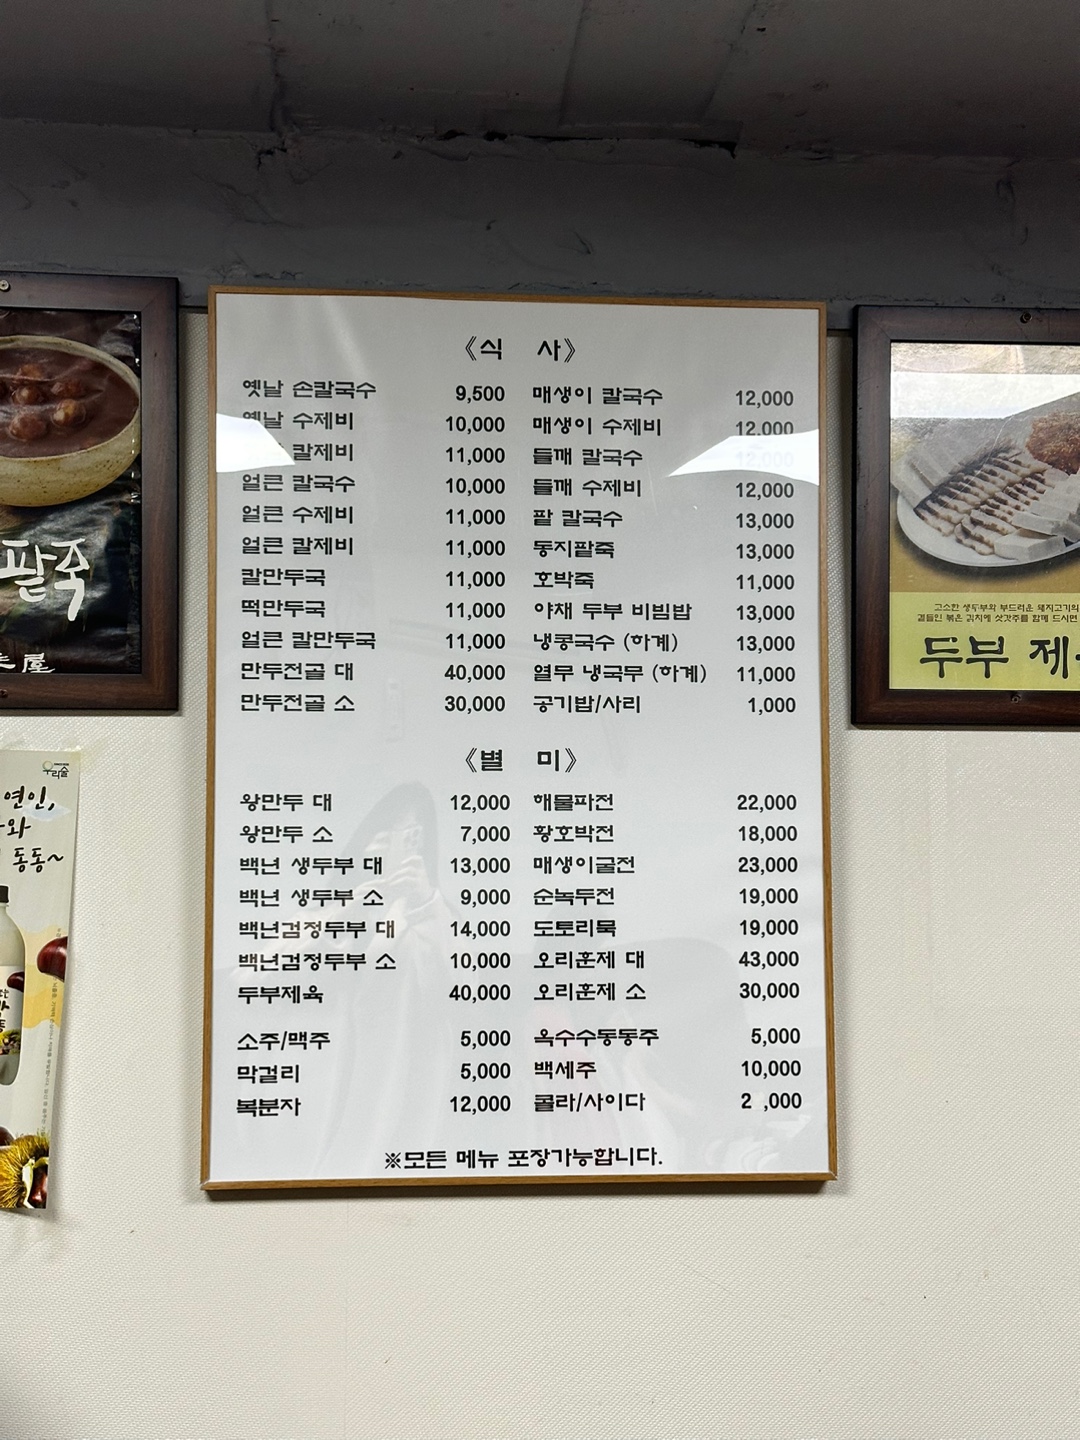 《식 사》
옛날 손칼국수 9,500
옛날 수제비 10,000
칼제비 11,000
얼큰 칼국수 10,000
얼큰 수제비 11,000
얼큰 칼제비 11,000
칼만두국 11,000
떡만두국 11,000
얼큰 칼만두국 11,000
만두전골 대 40,000
만두전골 소 30,000
매생이 칼국수 12,000
매생이 수제비 12,000
들깨 칼국수 12,000
들깨 수제비 12,000
팥 칼국수 13,000
동지팥죽 13,000
호박죽 11,000
야채 두부 비빔밥 13,000
냉콩국수 (하계) 13,000
열무 냉국무 (하계) 11,000
공기밥/사리 1,000
《별 미》
왕만두 대 12,000
왕만두 소 7,000
백년 생두부 대 13,000
백년 생두부 소 9,000
백년검정두부 대 14,000
백년검정두부 소 10,000
두부제육 40,000
해물파전 22,000
황호박전 18,000
매생이굴전 23,000
순녹두전 19,000
도토리묵 19,000
오리훈제 대 43,000
오리훈제 소 30,000
소주/맥주 5,000
막걸리 5,000
복분자 12,000
옥수수동동주 5,000
백세주 10,000
콜라/사이다 2 ,000
※모든 메뉴 포장가능합니다.
팥죽
屋
우리술
연인,
와
동동~
고소한 생두부와 부드러운 돼지고기의
곁들인 볶은 김치에 삿갓주를 함께 드시면
두부 제